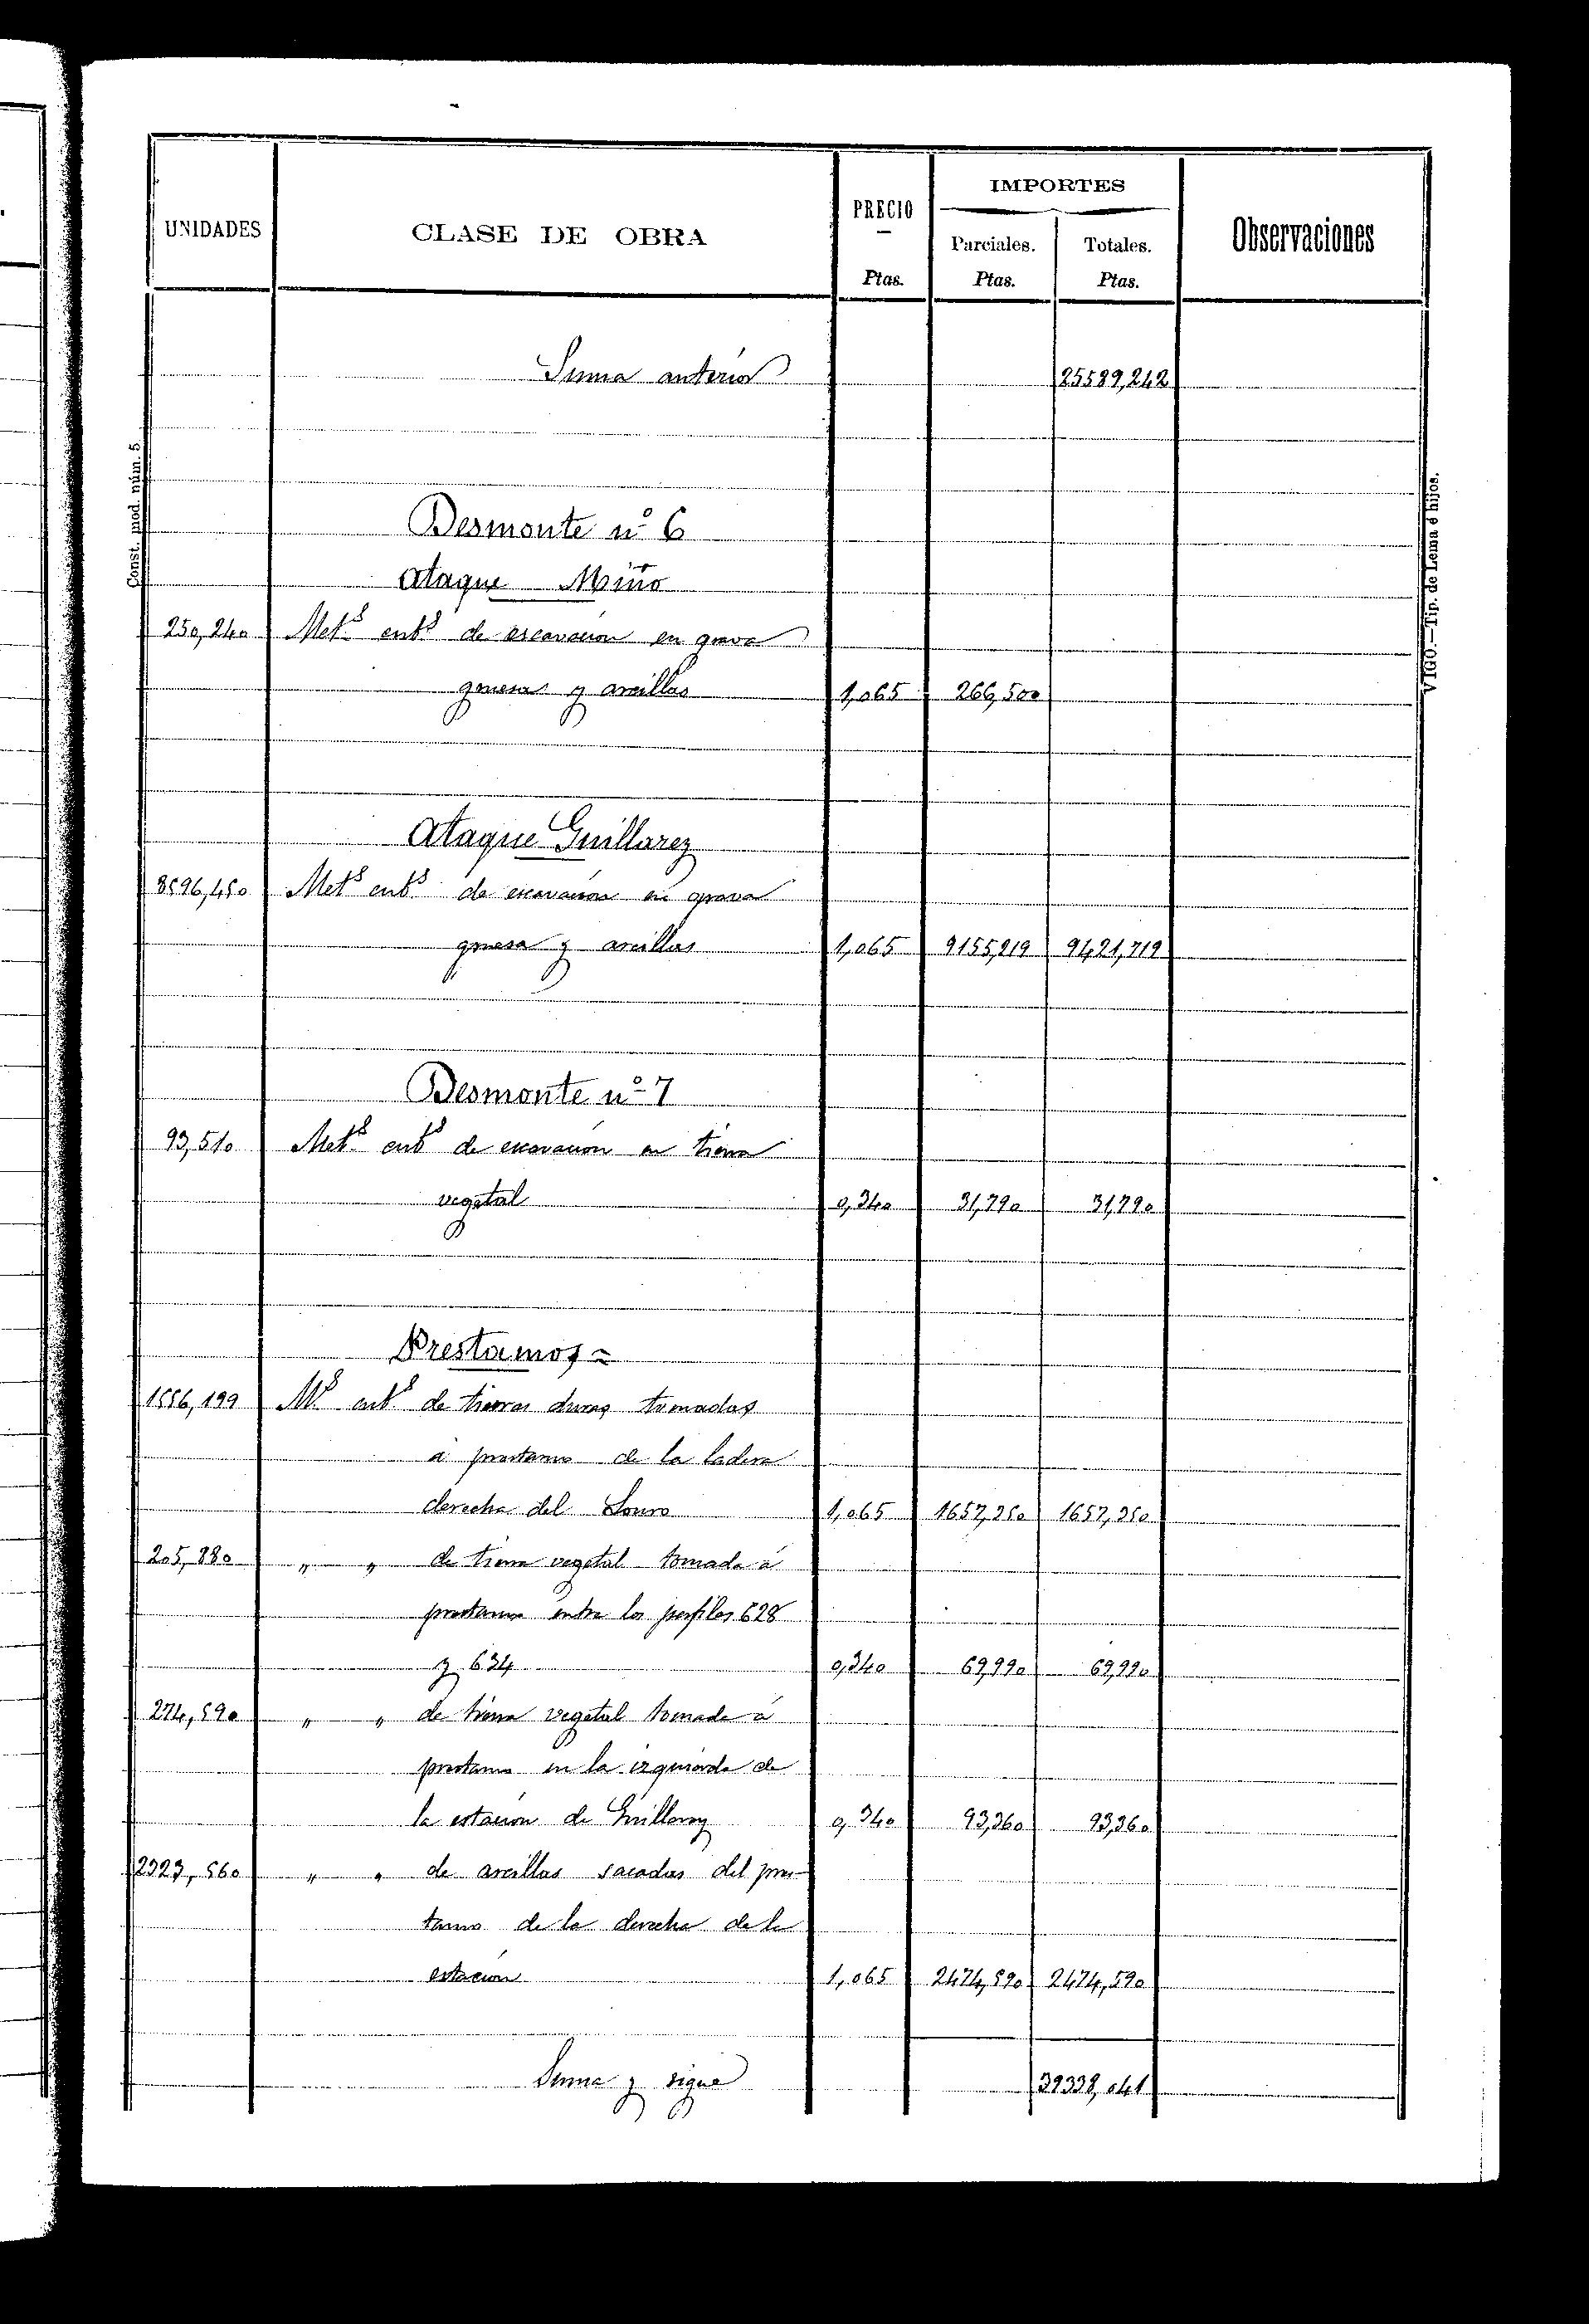 UNIDADES CLASE DE OBRA PRECIO Ptas. IMPORTES Parciales. Ptas. Totales. Ptas. Observaciones
Const. mod. núm. 5.
VIGO.—Tip. de Lema é hijos.
Suma anterior 25589,242
Desmonte nº 6
Ataque Miño
250,240 Metˢ cubˢ de escavacion en grava
gruesa y arcillas 1,065 266,500
Ataque Guillarez
8596,450 Metˢ cubˢ de escavacion en grava
gruesa y arcillas 1,065 9155,219 9421,719
Desmonte nº 7
93,510 Metˢ cubˢ de escavacion en tierra
vegetal 0,340 31,790 31,790
Prestamos =
1556,199 Mˢ cubˢ de tierras duras tomadas
a prestamo de la ladera
derecha del Louro 1,065 1657,350 1657,350
205,880 " " de tierra vegetal tomada á
prestamo entre los perfiles 628
y 634 0,340 69,990 69,990
274,590 " " de tierra vegetal tomada á
prestamo en la izquierda de
la estacion de Guillarey 0,340 93,360 93,360
2323,560 " " de arcillas sacadas del pres-
tamo de la derecha de la
estacion 1,065 2474,590 2474,590
Suma y sigue 39338,041